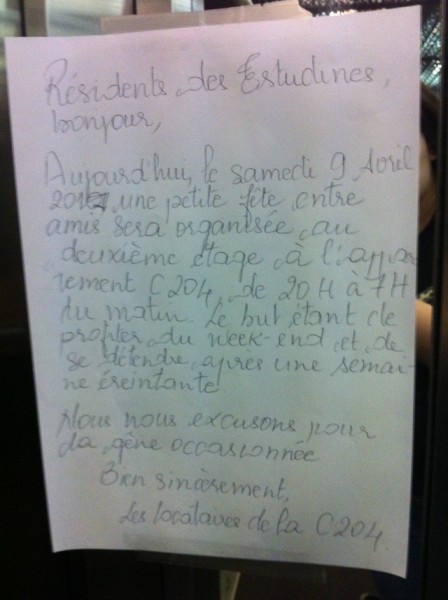 Résidents des Estudines,
bonjour,
Aujourd'hui, le samedi 9 Avril
une petite fête entre
amis sera organisée au
deuxième étage à l'appar
tement C204, de 20H à 7H
du matin. Le but étant de
profiter du week-end et de
se détendre après une semai-
ne éreintante.
Nous nous excusons pour
la gêne occasionnée
Bien sincèrement,
Les locataires de la C204.